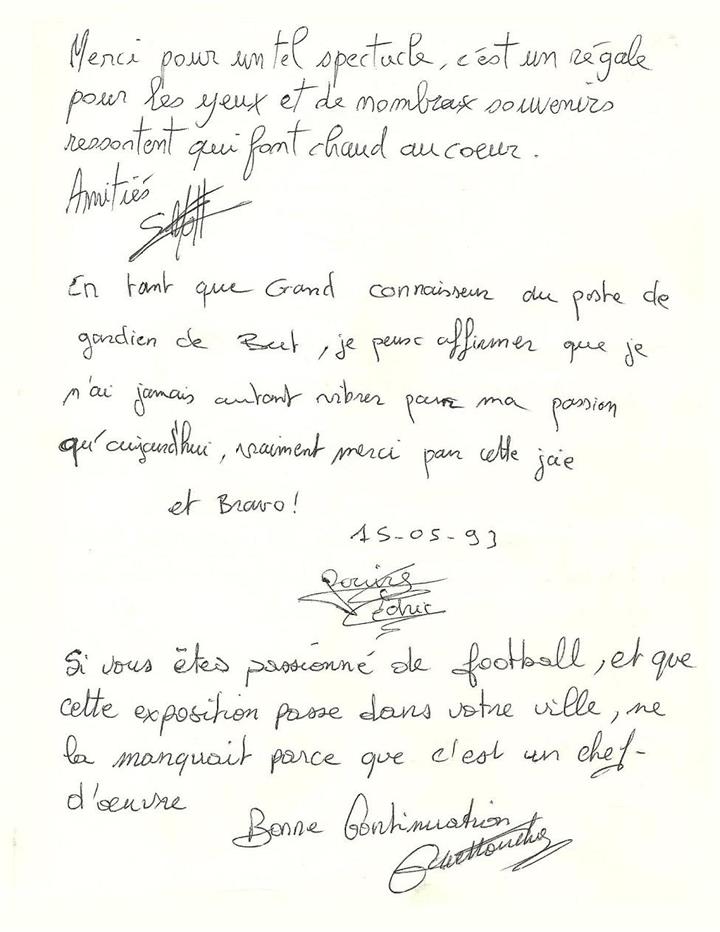 Merci pour un tel spectacle, c'est un régale
pour les yeux et de nombrax souvenirs
ressortent qui font chaud au coeur.
Amitiés
En tant que Grand connaisseur du poste de
gardien de But, je peux affirmer que je
n'ai jamais autant vibrer pour ma passion
qu'aujourd'hui, vraiment merci par cette joie
et Bravo!
15-05-93
Cédric
Si vous êtes passionné de football, et que
cette exposition passe dans votre ville, ne
la manquait parce que c'est un chef-
d'œuvre
Bonne Continuation